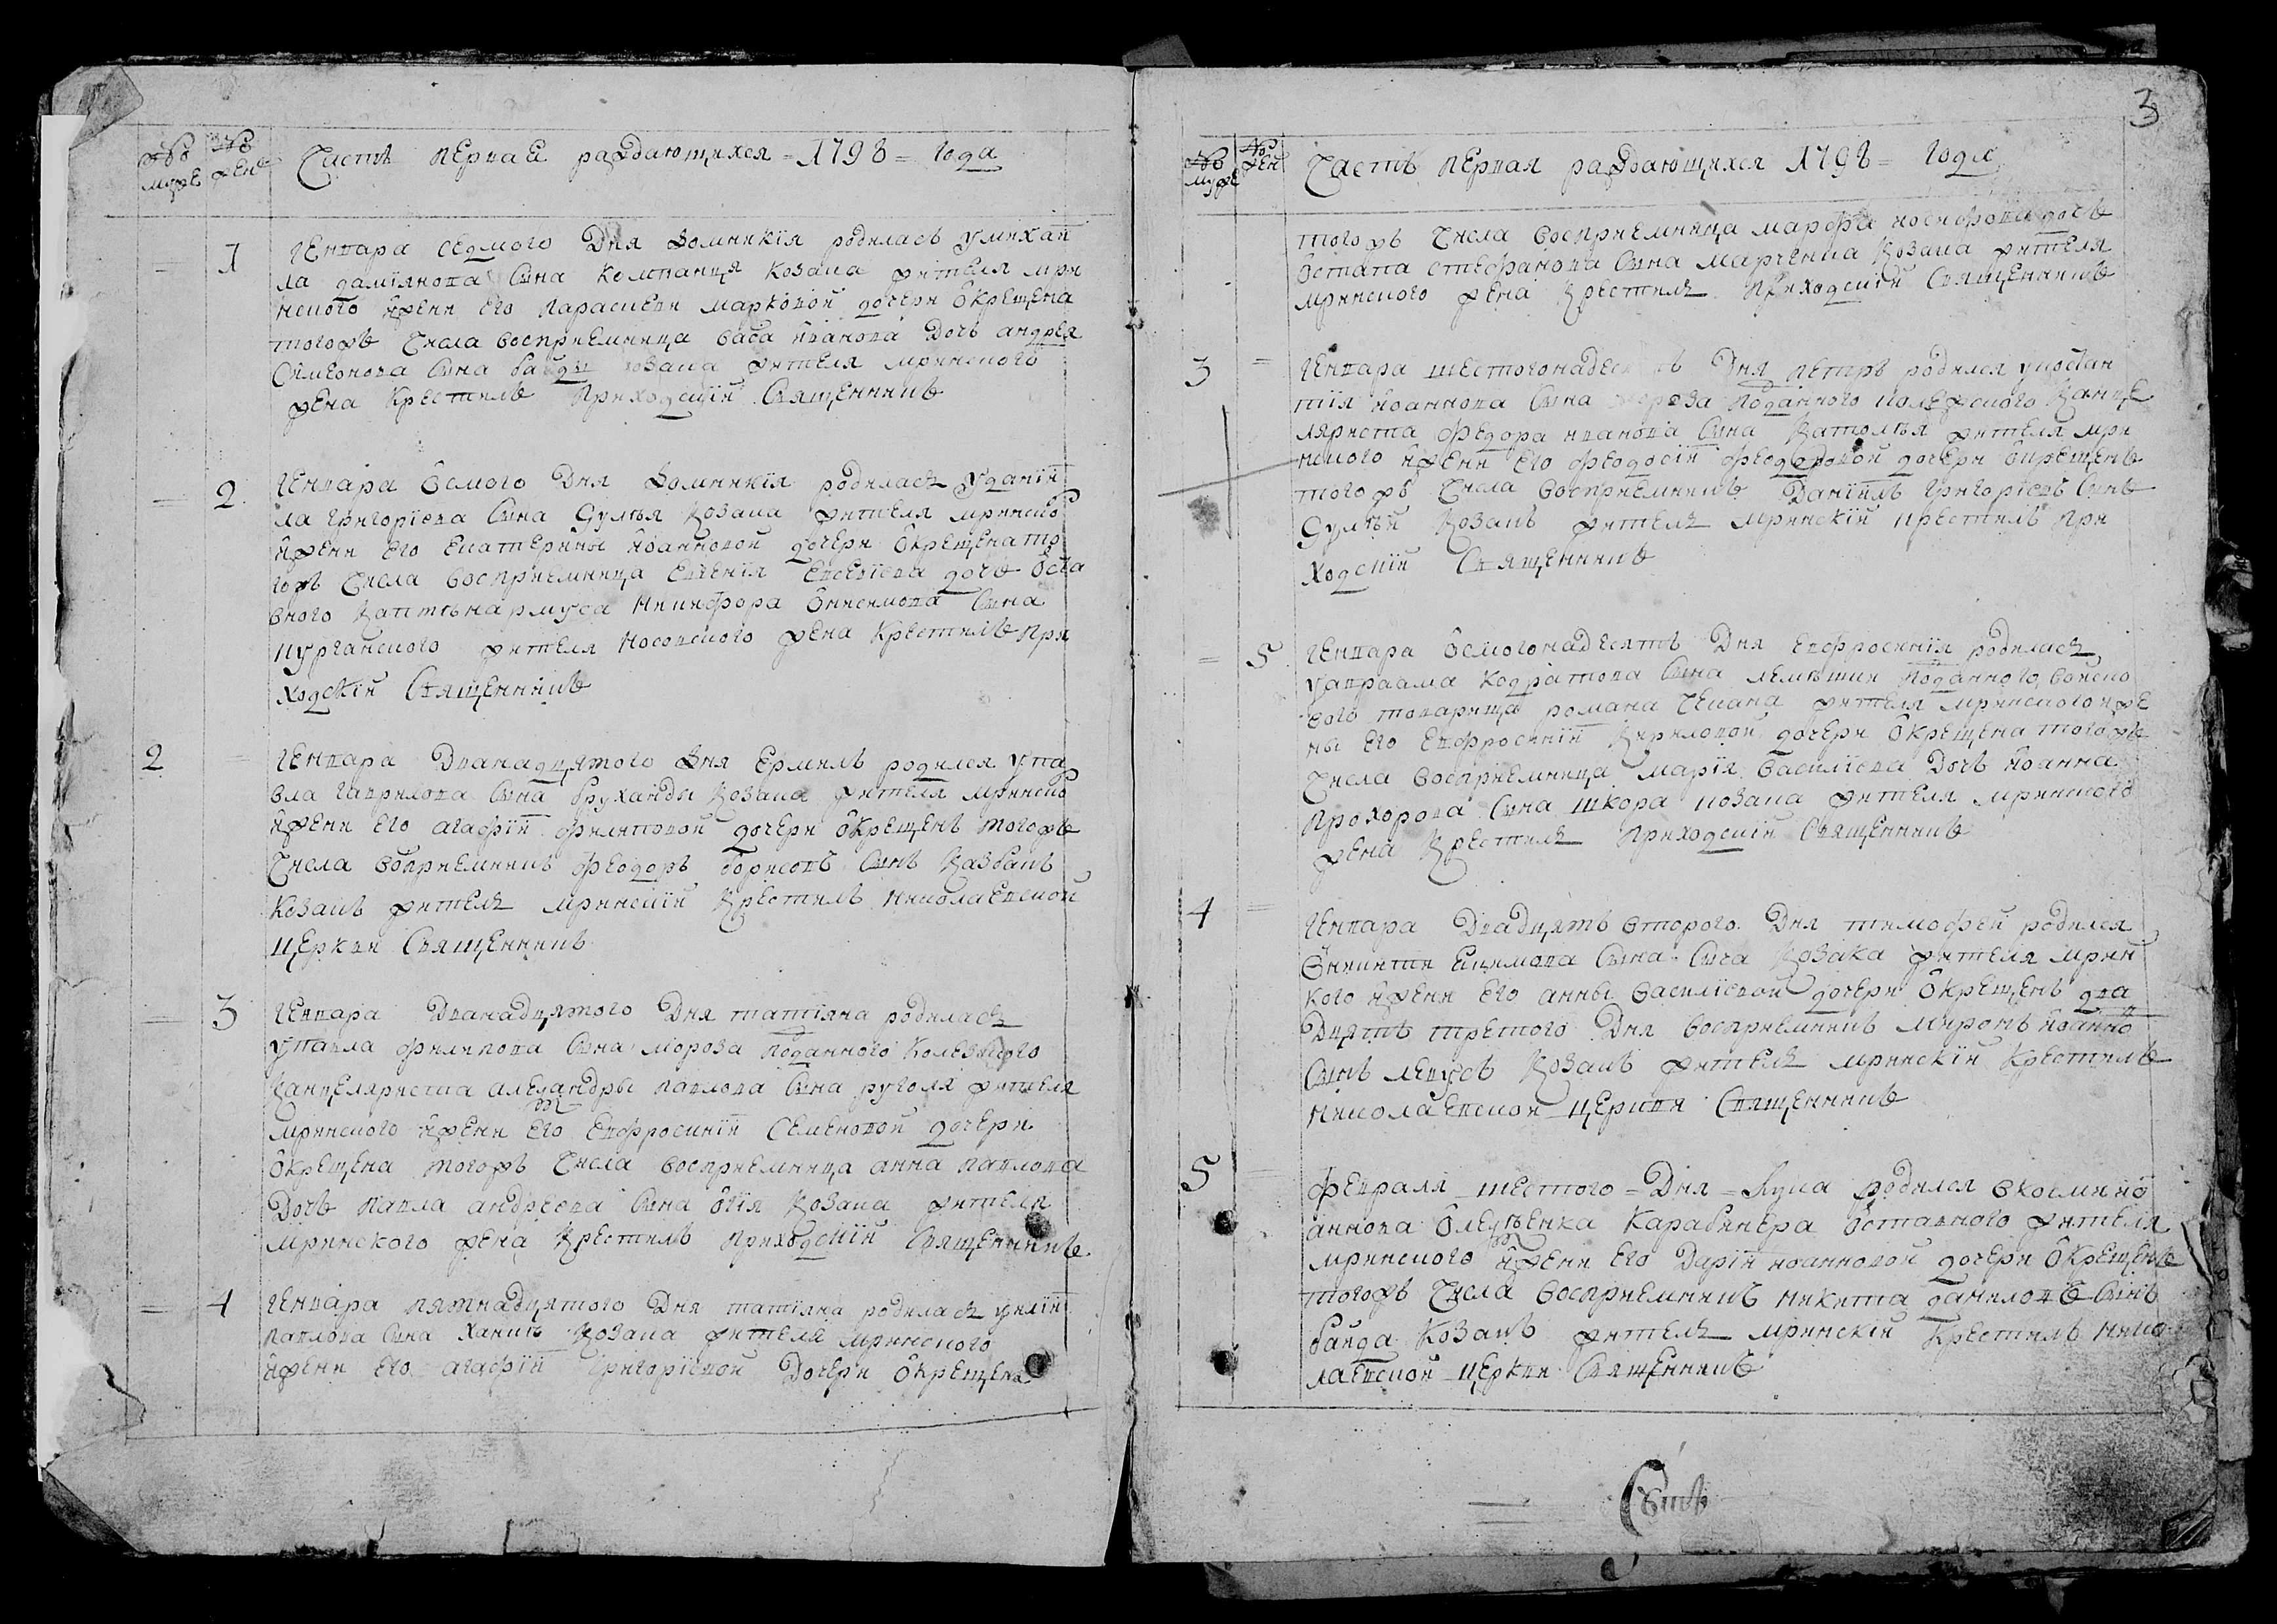 № муже
№ жен
Часть первая раждающихся = 1798 = года
= 1 Генвара седмого Дня Домникія родилась умихаи
ла даміянова Сына Компанця козака жителя мрин
ского иженi его параскеви марковой дочери Окрещена
тогожъ Числа восприемница васа иванова Дочь андрея
Симеонова Сына байди козака жителя мринского
жена Крестилъ Приходскій Священникъ
= 2 Генвара Осмого Дня Домникія родилась Уданіи
ла григоріева Сына Сулѣя Козака жителя мринско
ижени его екатерины иоанновой дочери Окрещена то
гожъ Числа восприемница евгенія евсевіева дочь Оста
вного Каптенармуса Никифора Онисимова Сына
курганского жителя носовского жена Крестилъ при
ходскій Священникъ
2 = Генвара Дванадцятого Дня Ермилъ родился упа
вла гаврилова Сына бруханды Козака жителя мринско
ижени его агафіи филиповой дочери Окрещенъ тогожъ
Числа воприемникъ феодоръ борисовъ Сынъ Казбанъ
Козакъ житель мринскій Крестилъ николаевской
церкви Священникъ
= 3 Генвара Дванадцятого Дня татіяна родилась
упавла филипова Сына мороза поданного Колезского
Канцеляриста александры павлова Сына руголя жителя
мринского ижени его евфросиніи Семеновой дочери
Окрещена тогожъ Числа восприемница анна павлова
Дочь павла андреева Сына Козака жителя
мринского жена Крестилъ приходскій Священникъ
= 4 Генвара пятнадцятого Дня татіяна родилась уиліи
павлова Сына Ханиѣ Козака жителя мринского
ижени его агафіи григоріевой Дочери Окрещена
3
№ муже
№ жен
Часть первая раждающихся 1798 = года
тогожъ Числа восприемница марфа иосифова дочь
Остапа стефанова Сына марченка Козака жителя
мринского жена Крестилъ Приходскій Священникъ
3 = Генвара шестогонадесять Дня петръ родился укостан
тія иоаннова Сына мороза поданного колежского Канце
ляриста федора иванова Сына Католѣя жителя мри
нского ижени его феодосіи феодоровой дочери окрещенъ
тогожъ Числа восприемникъ Даніилъ григоріевъ Сынъ
Сулѣй Козакъ житель мринскій крестилъ при
ходскій Священникъ
= 5 Генвара Осмогонадесять Дня евфросинія родилась
уавраама кодратова Сына лемѣшки поданного войско
вого товарища романа Чекана жителя мринского иже
ны его евфросиніи Кириловой дочери Окрещена тогожъ
Числа восприемница марія василіева Дочь иоанна
прохорова Сына шкора козака жителя мринского
жена Крестилъ приходскій Священникъ
4 = Генвара Двадцять второго Дня тимофей родился
Оникити екимова Сына Сыча Козака жителя мрин
кого ижени его анны василіевой дочери Окрещенъ два
дцять третого Дня восприемникъ миронъ иоанно
Сынъ левусъ Козакъ житель мринскій Крестилъ
николаевской церкви Священникъ
5 = февраля шестого = Дня = Лука родился вкосми ио
аннова Олеѣенка Карабинера Оставного жителя
мринского ижени его Даріи иоанновой дочери Окрещенъ
тогожъ Числа восприемникъ никита даниловъ Сынъ
байда Козакъ житель мринскій Крестилъ нико
лаевской церкви Священникъ